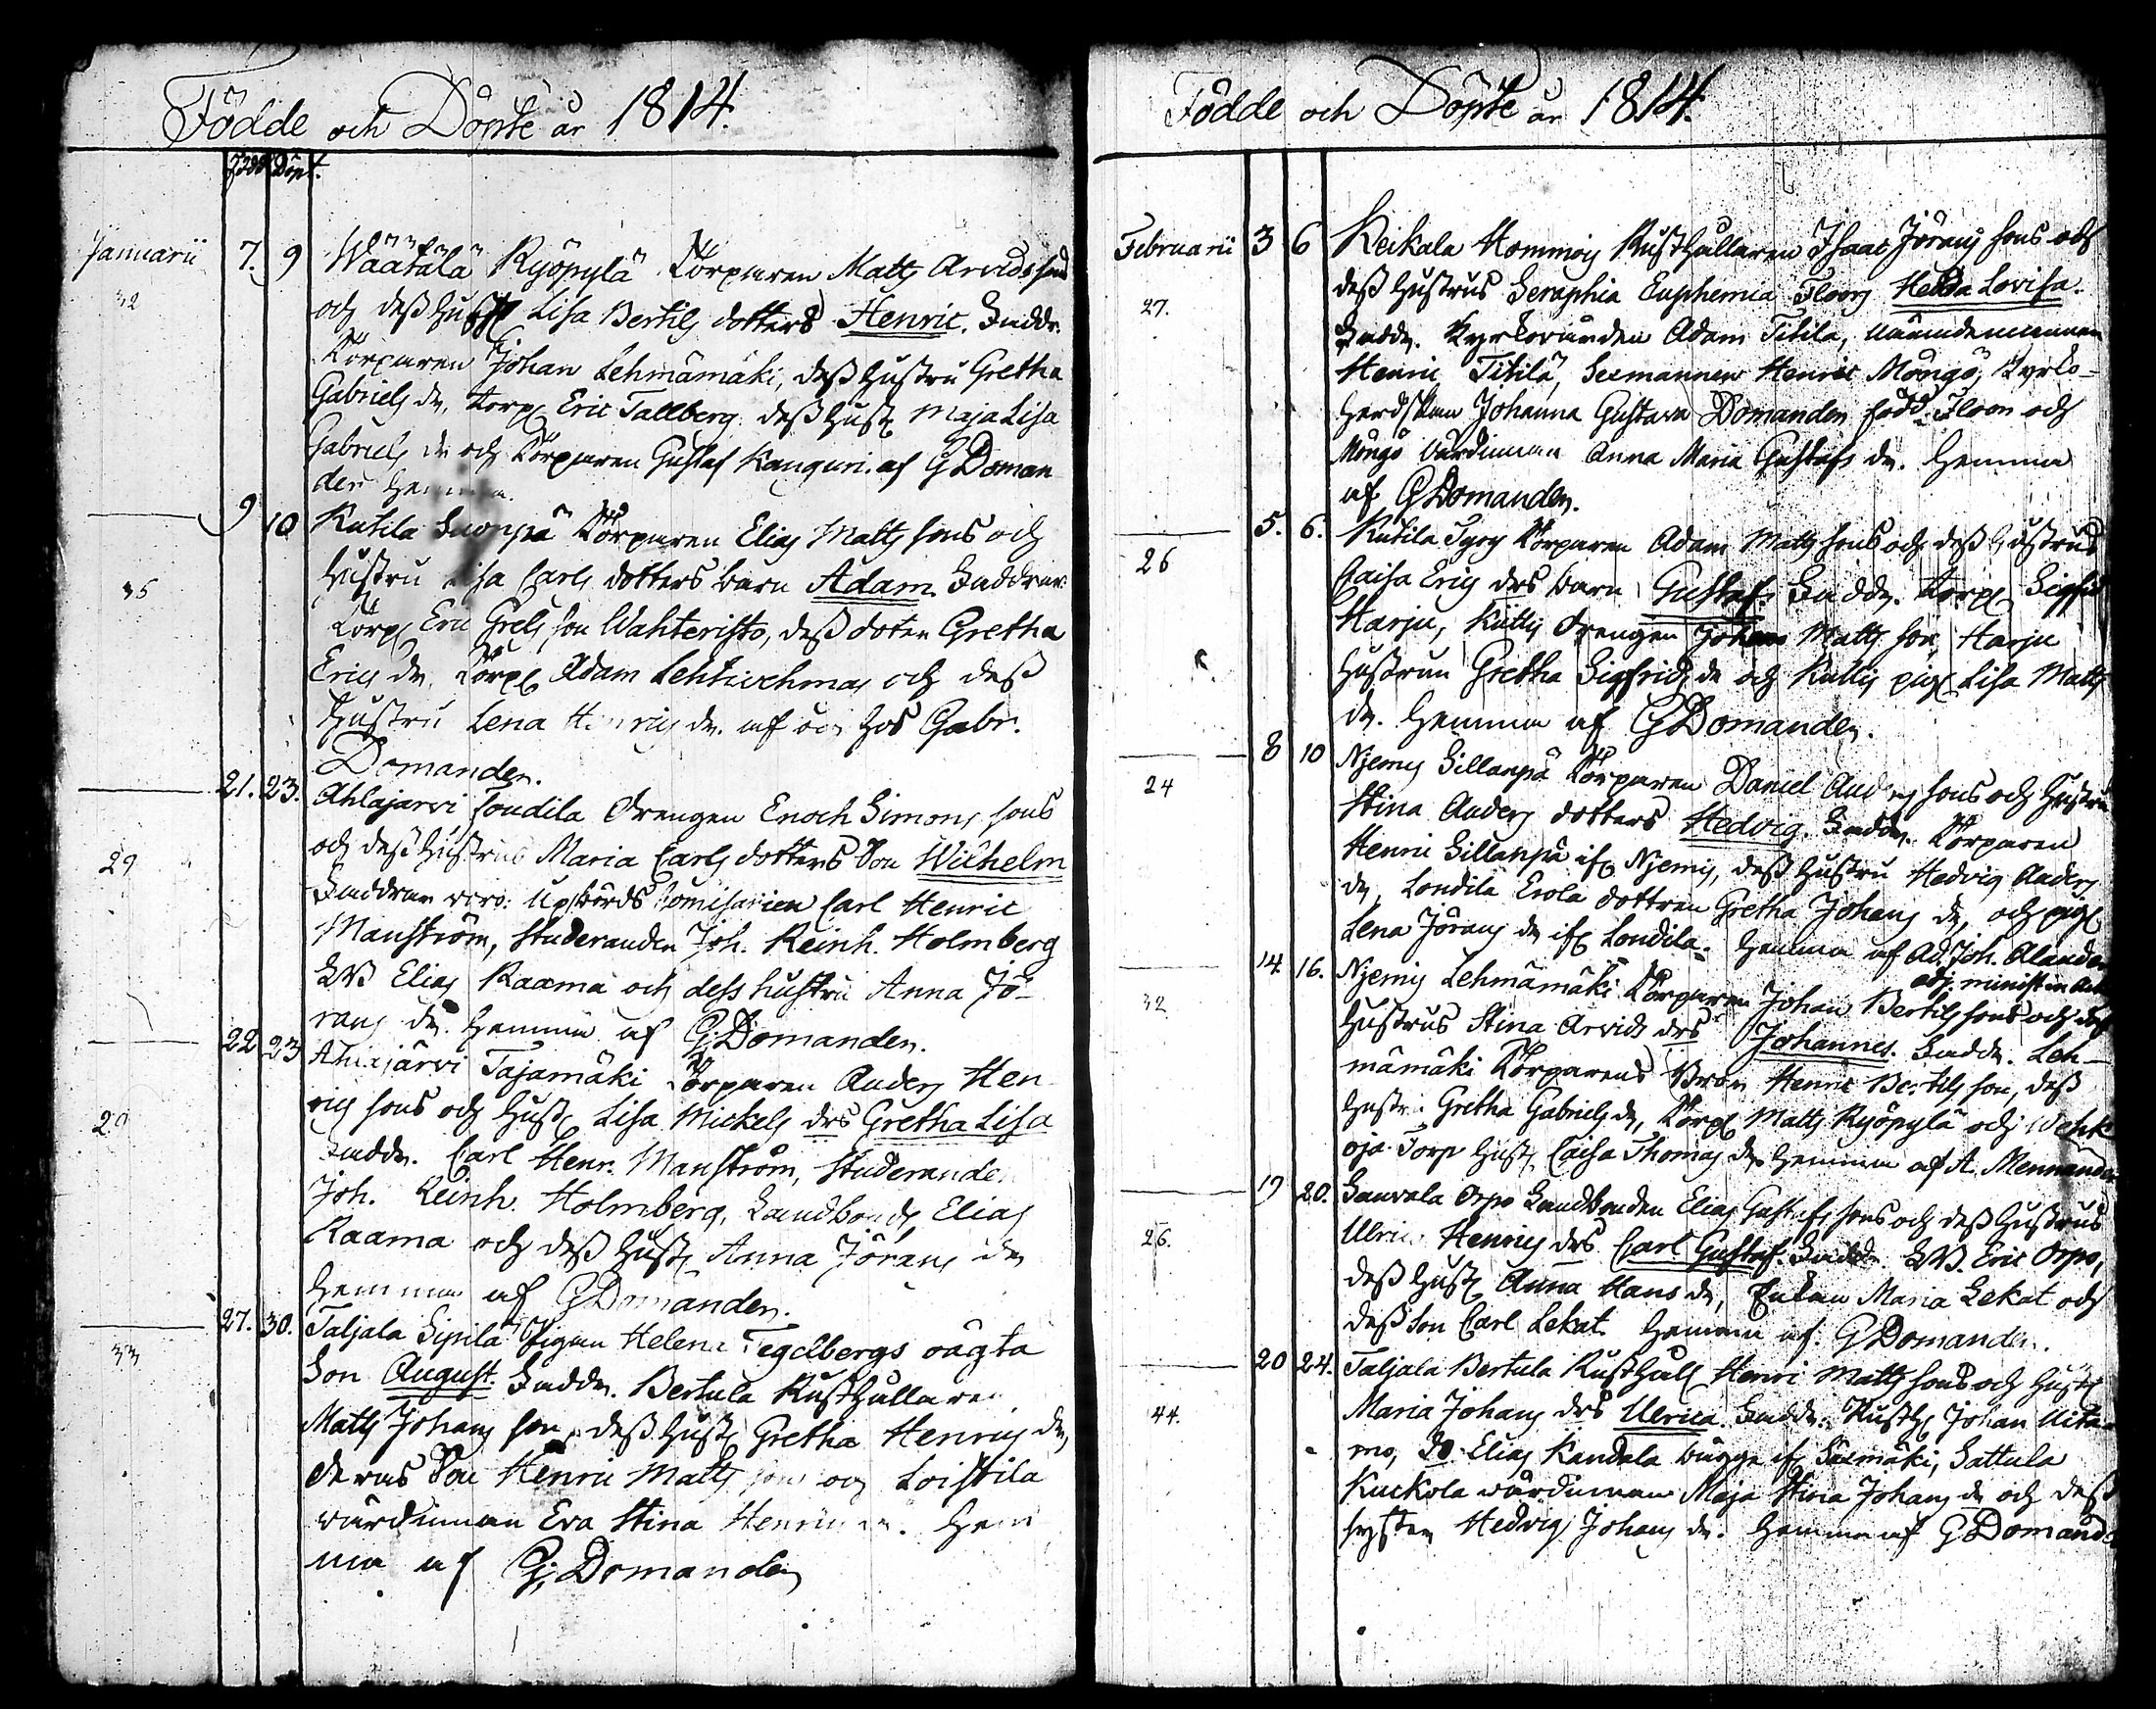 Födde och Döpte år 1814.
Född Döpt.
Januarii 7. 9 Wäätälä Ryöpylä Torparen Matts Arvids sons
32 och dess Hustrus Lisa Bertils dotters Henric. Faddr.
Torparen Johan Lehmämäki, dess Hustru Gretha
Gabriels dr, torp. Eric Tallberg dess Hust. Maja Lisa
Gabriels dr och Torparen Gustaf Kanguri. af G Doman
der Hemma.
9 10 Kutila Torparen Elias Matts sons och
35 Hustru Lisa Carls dotters barn Adam. Faddrar
Torp. Eric Grels son Wahteristo, dess doter Gretha
Erics dr. Torp. Adam Lehtivehmas och dess
Hustru Lena Henrics dr. af och hos Gabr.
Domander.
21. 23. Ahlajarvi Londila Drengen Enoch Simons sons
29 och dess Hustrus Maria Carls dotters Son Wilhelm
Faddrar woro: Upbörds Comisarien Carl Henric
Manström, Studeranden Joh. Reinh. Holmberg
Elias Raama och dess hustru Anna Jö-
rans dr. Hemma af G Domander.
22 23 Ahlajärvi Tajamäki Torparen Anders Hen
20 rics sons och Hust. Lisa Mickels drs Gretha Lisa
Faddr. Carl Henr. Manström, Studeranden
Joh. Reinh. Holmberg, Landbond. Elias
Raama och dess Hust. Anna Jörans dr
Hemma af G Domander.
27. 30. Taljala Sipilä Pigan Helena Tegelbergs oägta
33 Son August. Faddr. Bertula Rusthållaren
Matts Johans son, dess Hust. Gretha Henrics dr,
deras Son Henric Matts son och Loistila
wärdinnan Eva Stina Henrics dr. Hem
ma af G. Domander
Födde och Döpte år 1814.
Februarii 3 6 Keikala Hommois Rusthållaren Isaac Jörans sons och
27. dess Hustrus Seraphia Euphemia Floors Hedda Lovisa.
Faddr. Kyrkovärden Adam Titila, Nämndemannen
Henric Titilä, Sexmannen Henric Möngö, Kyrko-
herdskan Johanna Gustava Domander född Floor och
Möngö Värdinnan Anna Maria Gustafs dr. Hemma
af G Domander.
5. 6. Kutila Torparen Adam Matts sons och dess Hustrus
26 Caisa Erics drs barn Gustaf. Faddr. Torp. Sigfrid
Harju, Drengen Johan Matts son, Harju
Hustrun Gretha Sigfrids dr och pig. Lisa Matts
dr. Hemma af G Domander.
8 10 Njemis Sillanpä Torparen Daniel Anders sons och Hustrus
24 Stina Anders dotters Hedvig. Faddr. Torparen
Henric Sillanpä if. Njemis, dess Hustru Hedvig Anders
dr, Londila Erola dottren Gretha Johans dr, och pig.
Lena Jörans dr if. Londila. Hemma af Ad. Joh. Alander
adj. minist.
14. 16. Njemis Lehmämäki Torparen Johan Bertils sons och dess
32 Hustrus Stina Arvids drs Johannes. Faddr. Leh-
mämäki Torparens Bror Henric Bertils son, dess
Hustru Gretha Gabriels dr, Torp. Matts Ryöpylä och Wehk
oja Torp Hust. Caisa Thomas dr. Hemma af A. Mennander
19 20. Sauvala Orpo Landbonden Elias Gustafs sons och dess Hustrus
26. Ulrica Henrics drs Carl Gustaf. Faddr. Eric Orpo,
dess Hust. Anna Hans dr, Enkan Maria Lekat och
dess Son Carl Lekat. Hemma af G Domander.
20 24. Taljala Bertula Rusthåll. Henric Matts sons och Hust.
44. Maria Johans drs Ulrica. Faddr. Rusth. Johan
mo, Elias Kandala bägge if. Säxmäki, Sattula
Kuckola wärdinnan Maja Stina Johans dr och dess
syster Hedvig Johans dr. Hemma af G Domander